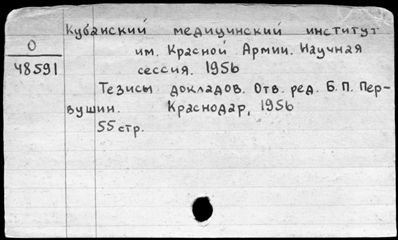 Кубанский медицинский институт
О
48591
им. Красной Армии. Научная
сессия. 1956
Тезисы докладов. Отв. ред. Б.П. Пер-
вушин. Краснодар, 1956
55 стр.